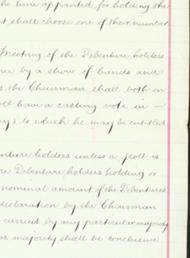 the time appointed for holding the
shall choose one of their number
Meeting of the Debenture holders
by a show of hands and
the Chairman shall both on
have a casting vote in
to which he may be entitled
holders unless a poll is
Debenture holders holding or
nominal amount of the Debentures
declaration by the Chairman
carried by any particular majority
majority shall be conclusive